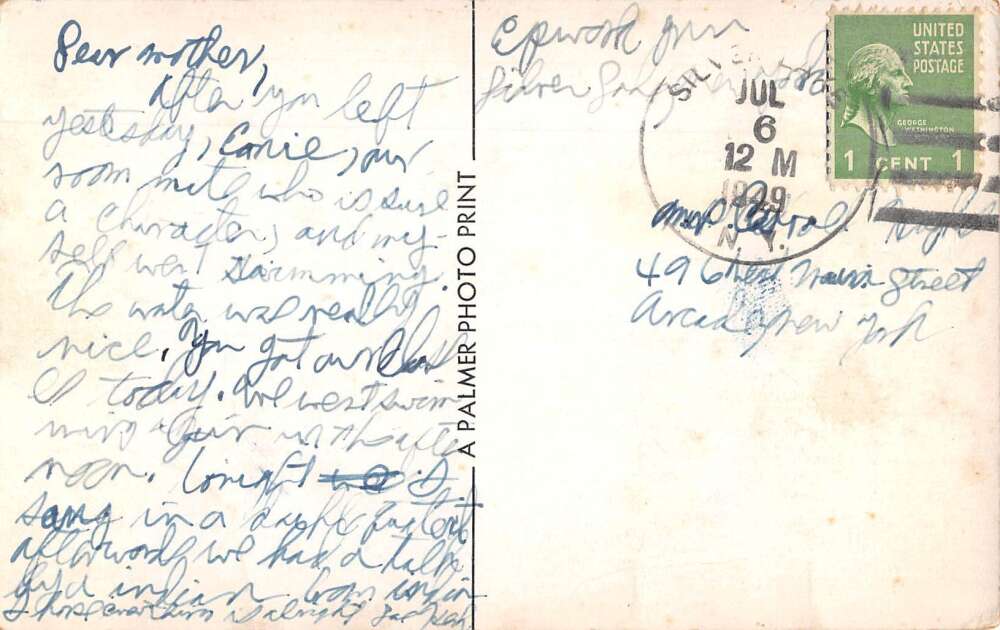 Dear mother,
After you left
yesterday, Connie, our
room mate who is sure
a character, and my-
self went swimming.
The water was really
nice. You got our
I today. We went swim
ming in the after
noon. Tonight I
sang in a
afterwords we had a talk
by a indian from
I hope everything is alright
A PALMER PHOTO PRINT
Epworth Inn
Silver
SILVER
JUL
6
12 M
1949
N.Y.
UNITED
STATES
POSTAGE
GEORGE
WASHINGTON
1 CENT 1
Mrs. Carrol
496 West Main Street
Arcade, New York